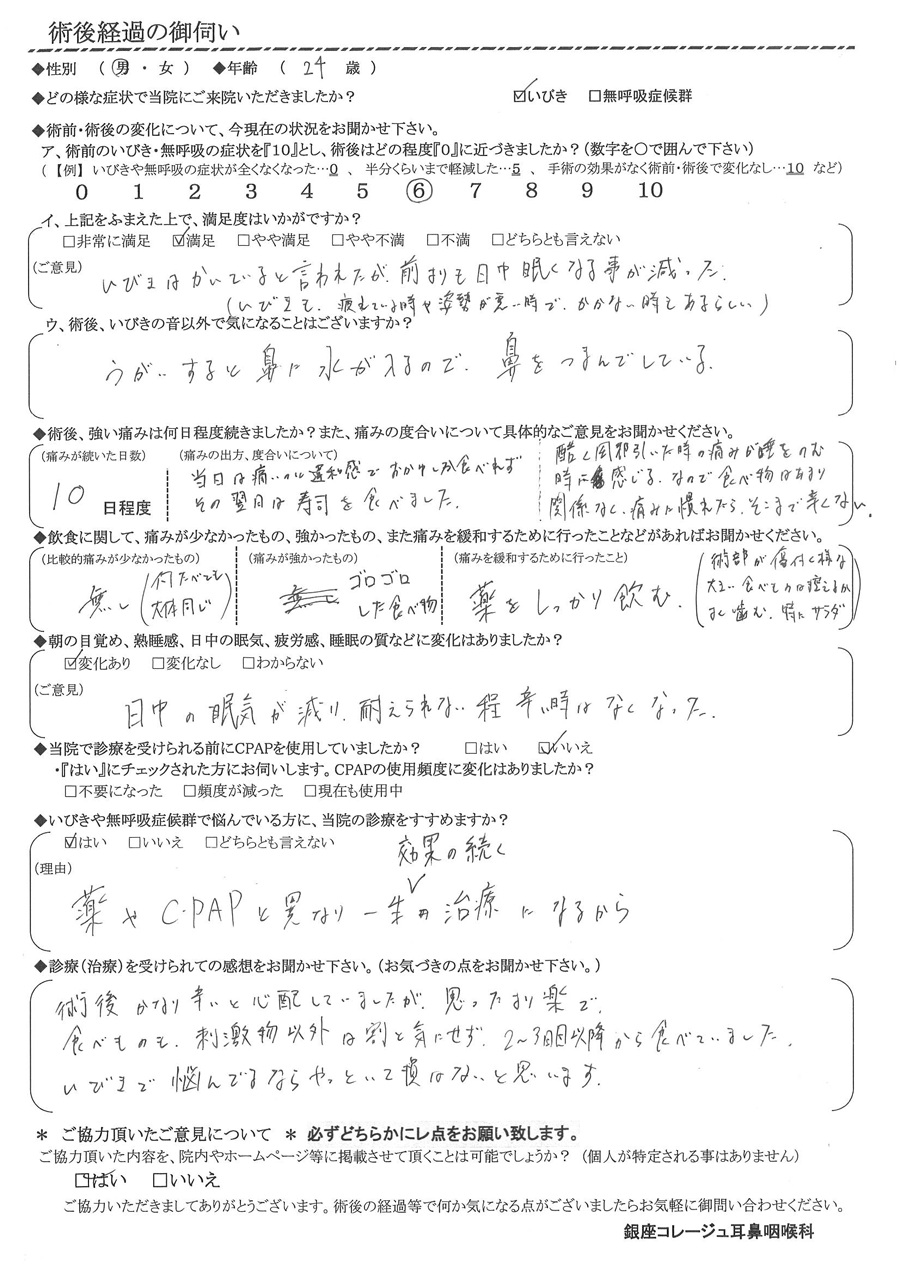 術後経過の御伺い
◆性別 ( 男 ・ 女 ) ◆年齢 ( 24 歳 )
◆どの様な症状で当院にご来院いただきましたか? ☑いびき □無呼吸症候群
◆術前・術後の変化について、今現在の状況をお聞かせ下さい。
ア、術前のいびき・無呼吸の症状を『10』とし、術後はどの程度『0』に近づきましたか?(数字を○で囲んで下さい)
(【例】 いびきや無呼吸の症状が全くなくなった…0 、 半分くらいまで軽減した…5 、 手術の効果がなく術前・術後で変化なし…10 など)
0 1 2 3 4 5 ⑥ 7 8 9 10
イ、上記をふまえた上で、満足度はいかがですか?
□非常に満足 ☑満足 □やや満足 □やや不満 □不満 □どちらとも言えない
(ご意見)
いびきはかいていると言われたが、前よりも日中眠くなる事が減った。
(いびきも、疲れている時や姿勢が悪い時で、かかない時もあるらしい)
ウ、術後、いびきの音以外で気になることはございますか?
うがいすると鼻に水が入るので、鼻をつまんでしている。
◆術後、強い痛みは何日程度続きましたか?また、痛みの度合いについて具体的なご意見をお聞かせください。
(痛みが続いた日数) (痛みの出方、度合いについて)
10 日程度
当日は痛いのに違和感でおかゆしか食べれず
その翌日は寿司を食べました。
酷く風邪引いた時の痛みが唾をのむ
時に感じる。なので食べ物はあまり
関係なく、痛みに慣れたら、そこまで辛くない。
◆飲食に関して、痛みが少なかったもの、強かったもの、また痛みを緩和するために行ったことなどがあればお聞かせください。
(比較的痛みが少なかったもの) (痛みが強かったもの) (痛みを緩和するために行ったこと)
無し (何たべても大体同じ)
ゴロゴロ
した食べ物
薬をしっかり飲む。
(術部が傷付く様な
大きい食べものは控えるか
よく噛む。特にサラダ)
◆朝の目覚め、熟睡感、日中の眠気、疲労感、睡眠の質などに変化はありましたか?
☑変化あり □変化なし □わからない
(ご意見)
日中の眠気が減り、耐えられない程辛い時はなくなった。
◆当院で診療を受けられる前にCPAPを使用していましたか? □はい ☑いいえ
・『はい』にチェックされた方にお伺いします。CPAPの使用頻度に変化はありましたか?
□不要になった □頻度が減った □現在も使用中
◆いびきや無呼吸症候群で悩んでいる方に、当院の診療をすすめますか?
☑はい □いいえ □どちらとも言えない
(理由)
効果の続く
薬やC-PAPと異なり一生の治療になるから
◆診療(治療)を受けられての感想をお聞かせ下さい。(お気づきの点をお聞かせ下さい。)
術後かなり辛いと心配していましたが、思ったより楽で、
食べものも、刺激物以外は割と気にせず、2~3日目以降から食べていました。
いびきで悩んでるならやっといて損はないと思います。
＊ ご協力頂いたご意見について ＊ 必ずどちらかにレ点をお願い致します。
ご協力頂いた内容を、院内やホームページ等に掲載させて頂くことは可能でしょうか? (個人が特定される事はありません)
☑はい □いいえ
ご協力いただきましてありがとうございます。術後の経過等で何か気になる点がございましたらお気軽に御問い合わせください。
銀座コレージュ耳鼻咽喉科